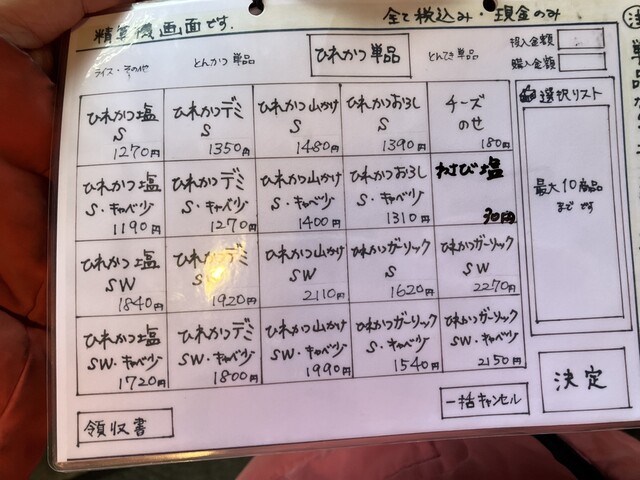 精算機画面です.
全て税込み・現金のみ
ライス・その他
とんかつ 単品
ひれかつ 単品
とんてき 単品
投入金額
購入金額
ひれかつ塩
S
1270円
ひれかつデミ
S
1350円
ひれかつ山かけ
S
1480円
ひれかつおろし
S
1390円
チーズ
のせ
180円
ひれかつ塩
S・キャベ少
1190円
ひれかつデミ
S・キャベ少
1270円
ひれかつ山かけ
S・キャベ少
1400円
ひれかつおろし
S・キャベ少
1310円
わさび塩
30円
ひれかつ塩
SW
1840円
ひれかつデミ
SW
1920円
ひれかつ山かけ
SW
2110円
ひれかつガーリック
S
1620円
ひれかつガーリック
SW
2270円
ひれかつ塩
SW・キャベ少
1720円
ひれかつデミ
SW・キャベ少
1800円
ひれかつ山かけ
SW・キャベ少
1990円
ひれかつガーリック
S・キャベ少
1540円
ひれかつガーリック
SW・キャベ少
2150円
選択リスト
最大10商品
までです
領収書
一括キャンセル
決定